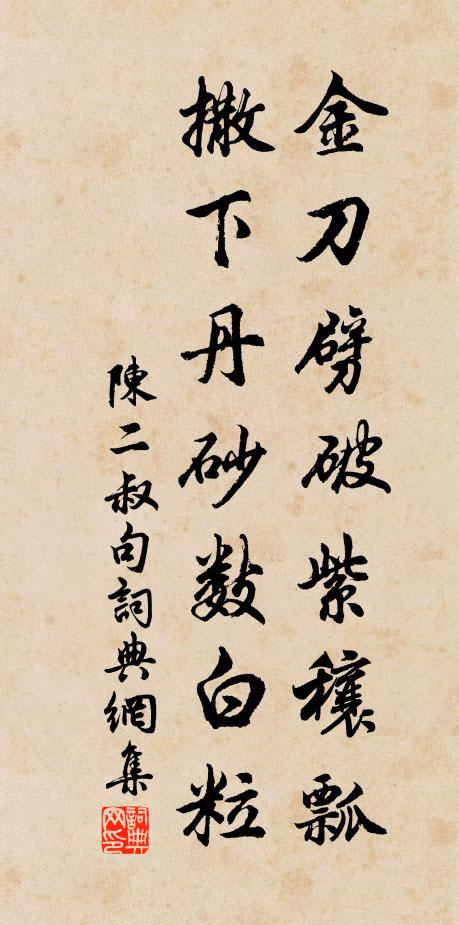 金刀劈破紫穰瓢
撒下丹砂數白粒
陳二叔句詞典網集
詞典网印